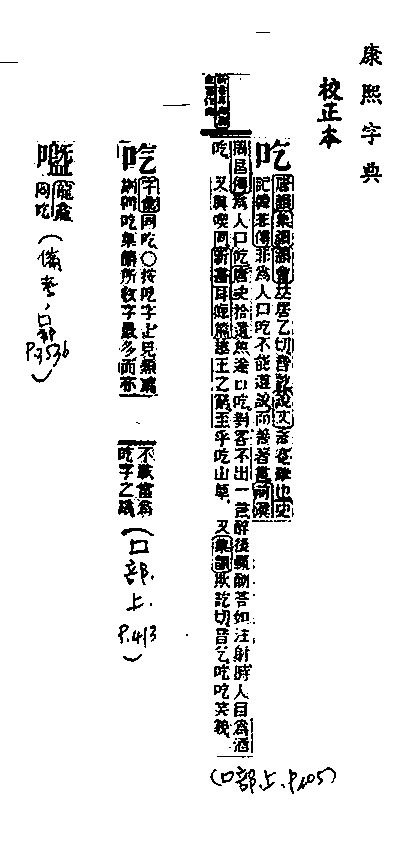 康熙字典
校正本
吃
唐韻集韻韻會𠀤居乙切音訖說文言蹇難也史
記韓非傳非爲人口吃不能道說而善著書前漢
周昌傳爲人口吃唐史拾遺焦遂口吃對客不出一言醉後輒酬答如注射時人目爲酒
吃 又與喫同新書耳痺篇越王之窮至乎吃山草 又集韻欺訖切音乞吃吃笑貌
(口部上.P.105)
字彙同吃〇按吃字止見類篇
吃集韻所收字最多而亦
不載當爲
吃字之譌
(口部.上.P.413)
龍龕
同吃
(備考,口部P.3536)